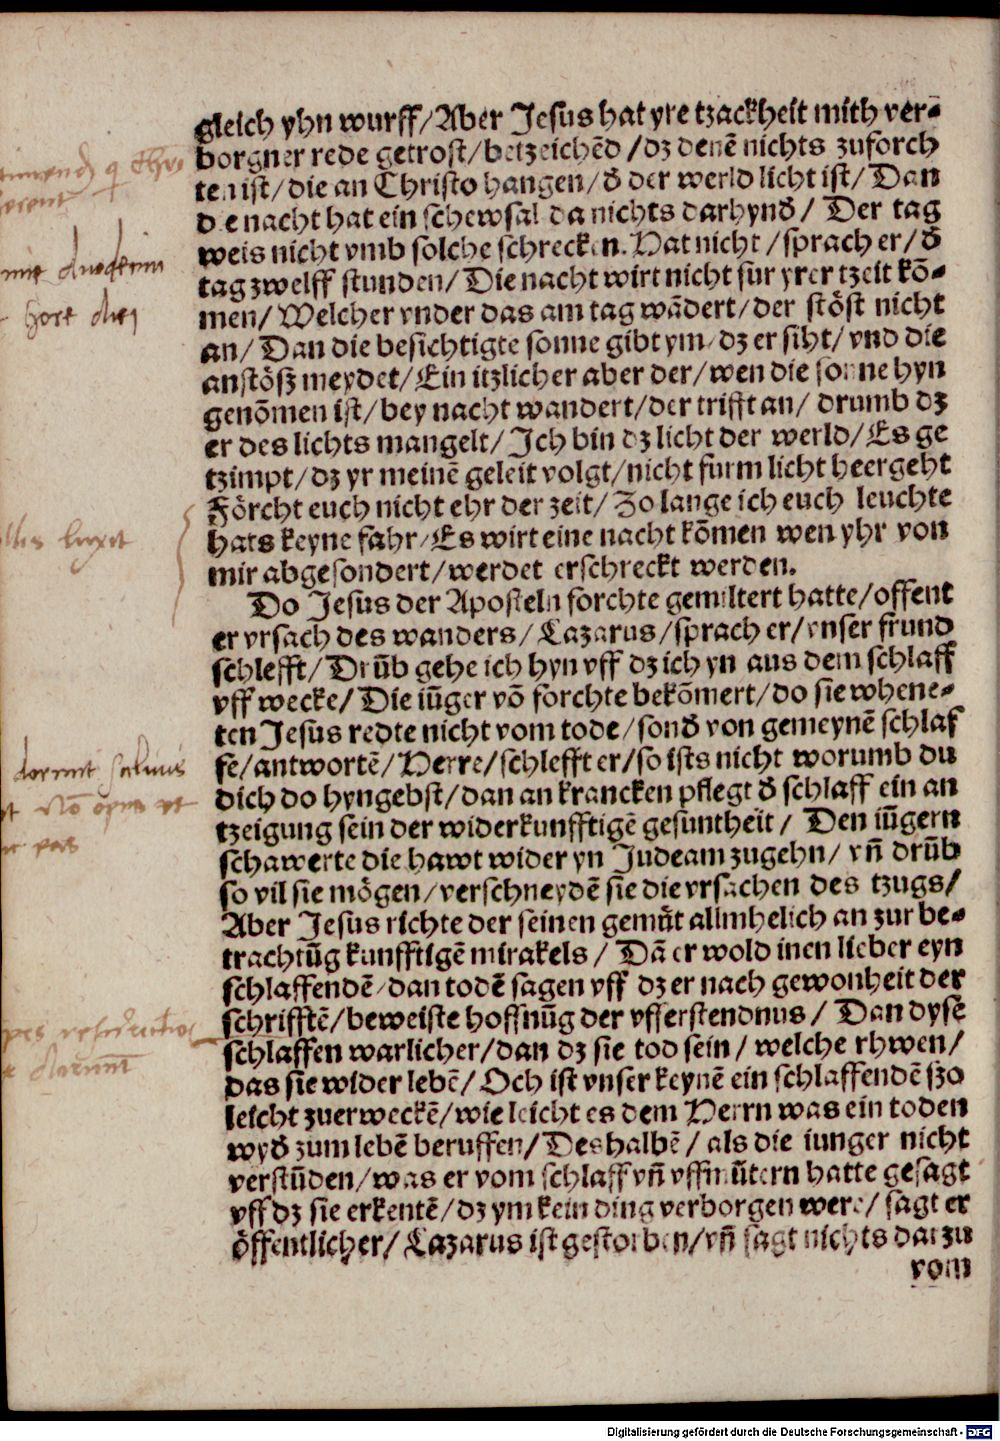 gleich yhn wurff/Aber Jesus hat yre tzackheit mith ver-
borgner rede getrost/betzeichēd /dz denē nichts zuforch
ten ist/die an Christo hangen/đ der werld licht ist/Dan
die nacht hat ein schewsal da nichts darhynđ/ Der tag
weis nicht vmb solche schrecken. Hat nicht /sprach er/đ
tag zwelff stunden/Die nacht wirt nicht fur yrer tzeit kō-
men/Welcher vnder das am tag wādert/der stöst nicht
an/Dan die besichtigte sonne gibt ym/dz er siht/vnd die
anstösz meydet/Ein itzlicher aber der/wen die sonne hyn
genōmen ist/bey nacht wandert/der trifft an/ drumb dz
er des lichts mangelt/Ich bin dz licht der werld/Es ge
tzimpt/dz yr meinē geleit volgt/nicht furm licht heergeht
Förcht euch nicht ehr der zeit/Zo lange ich euch leuchte
hats keyne fahr/Es wirt eine nacht kōmen wen yhr von
mir abgesondert/werdet erschreckt werden.
Do Jesus der Aposteln forchte gemiltert hatte/offent
er vrsach des wanders/Lazarus/sprach er/vnser frund
schlefft/Drūb gehe ich hyn vff dz ich yn aus dem schlaff
vff wecke/Die iūger vō forchte bekōmert/do sie whene-
ten Jesus redte nicht vom tode/sonđ von gemeynē schlaf
fe/antwortē/Herre/schlefft er/so ists nicht worumb du
dich do hyngebst/dan an krancken pflegt đ schlaff ein an
tzeigung sein der widerkunfftigē gesuntheit/ Den iūgern
schawerte die hawt wider yn Judeam zugehn/vñ drūb
so vil sie mögen/verschneydē sie die vrsachen des tzugs/
Aber Jesus richte der seinen gemůt allmhelich an zur be-
trachtūg kunfftigē mirakels/ Dā er wold inen lieber eyn
schlaffendē/dan todē sagen vff dz er nach gewonheit der
schrifftē/beweiste hoffnūg der vfferstendnus/ Dan dyse
schlaffen warlicher/dan dz sie tod sein/welche rhwen/
das sie wider lebē/Och ist vnser keynē ein schlaffendē szo
leicht zuerweckē/wie leicht es dem Herrn was ein toden
wyđ zum lebē beruffen/Deshalbē/ als die iunger nicht
verstūden/was er vom schlaff vñ vffmūtern hatte gesagt
vff dz sie erkentē/dz ym kein ding verborgen were/ sagt er
öffentlicher/Lazarus ist gestorben/vñ sagt nichts dar zu
vom
hore diei
luxit
dormit saluus
Nō opus
Digitalisierung gefördert durch die Deutsche Forschungsgemeinschaft - DFG